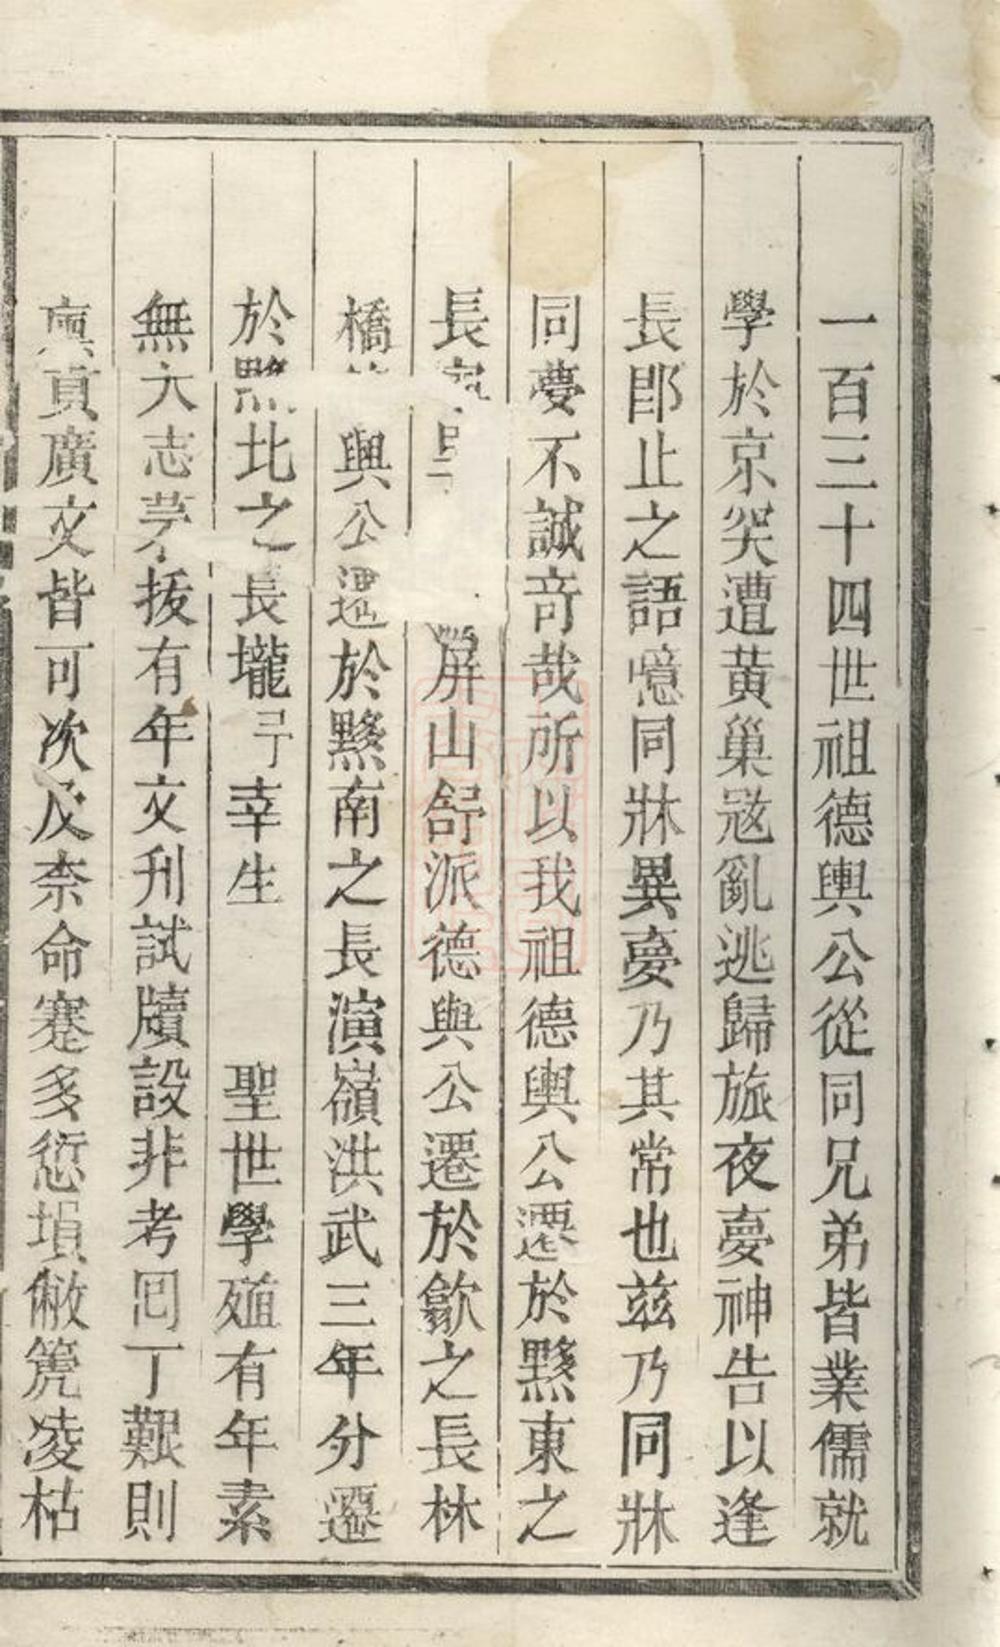 一百三十四世祖德輿公從同兄弟皆業儒就
學於京突遭黄巢寇亂逃歸旅夜夢神告以逢
長即止之語憶同牀異夢乃其常也兹乃同牀
同夢不誠竒哉所以我祖德輿公遷於黟東之
長屏山舒派德與公遷於歙之長林
橋與公遷於黟南之長演嶺洪武三年分遷
於黟北之長壠予幸生聖世學殖有年素
無大志茅㧞有年文刋試牘設非考囘丁艱則
廩貢廣文皆可次及奈命蹇多愆塤敝箎凌枯